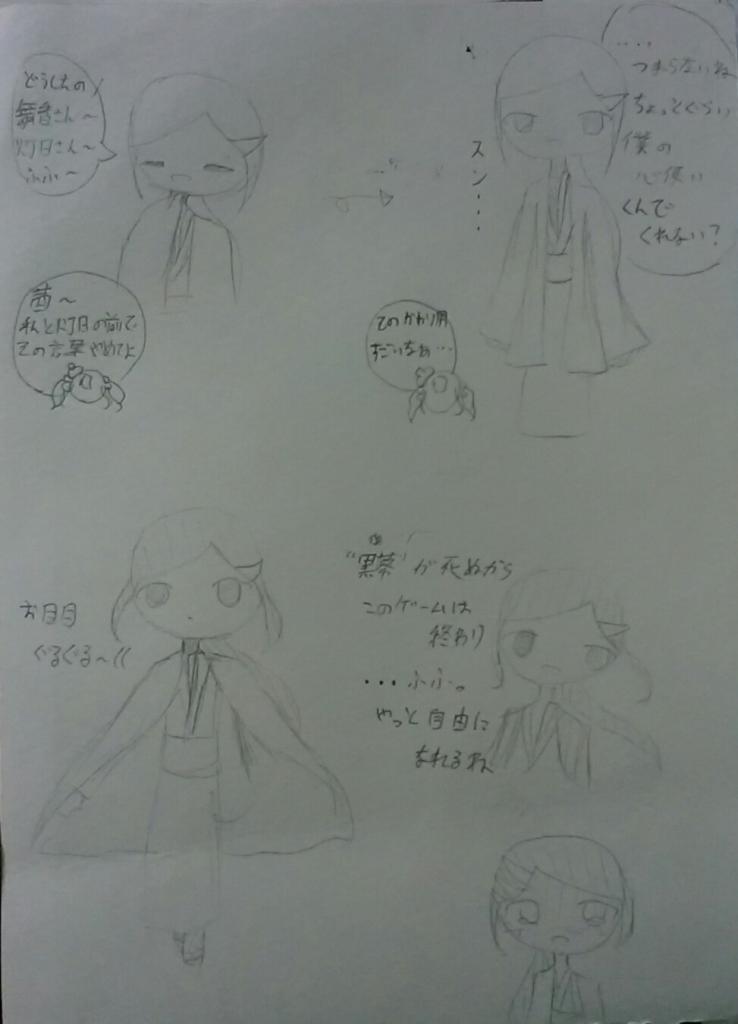 どうしたの
舞音さん〜
灯日さん〜
ふふ〜
・・・・
つまらないね
ちょっとぐらい
僕の
心使い
くんで
くれない?
スン・・・
茜〜
私と灯日の前で
その言葉やめてよ
そのかわり用
すごいなぁ…
お目目
ぐるぐる〜
"黒茶"が死ぬから
このゲームは
終わり
・・・ふふ。
やっと自由に
なれるね